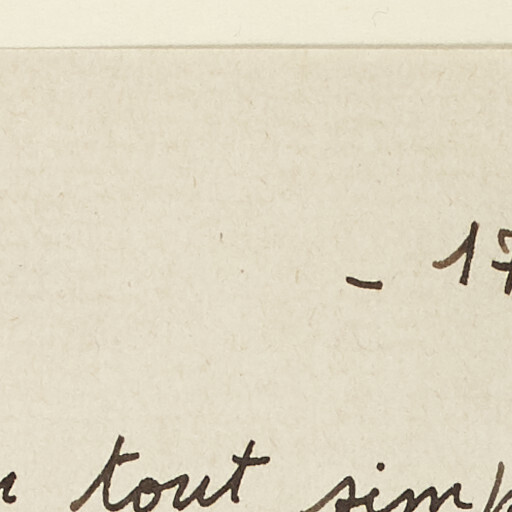 - 17
tout simp